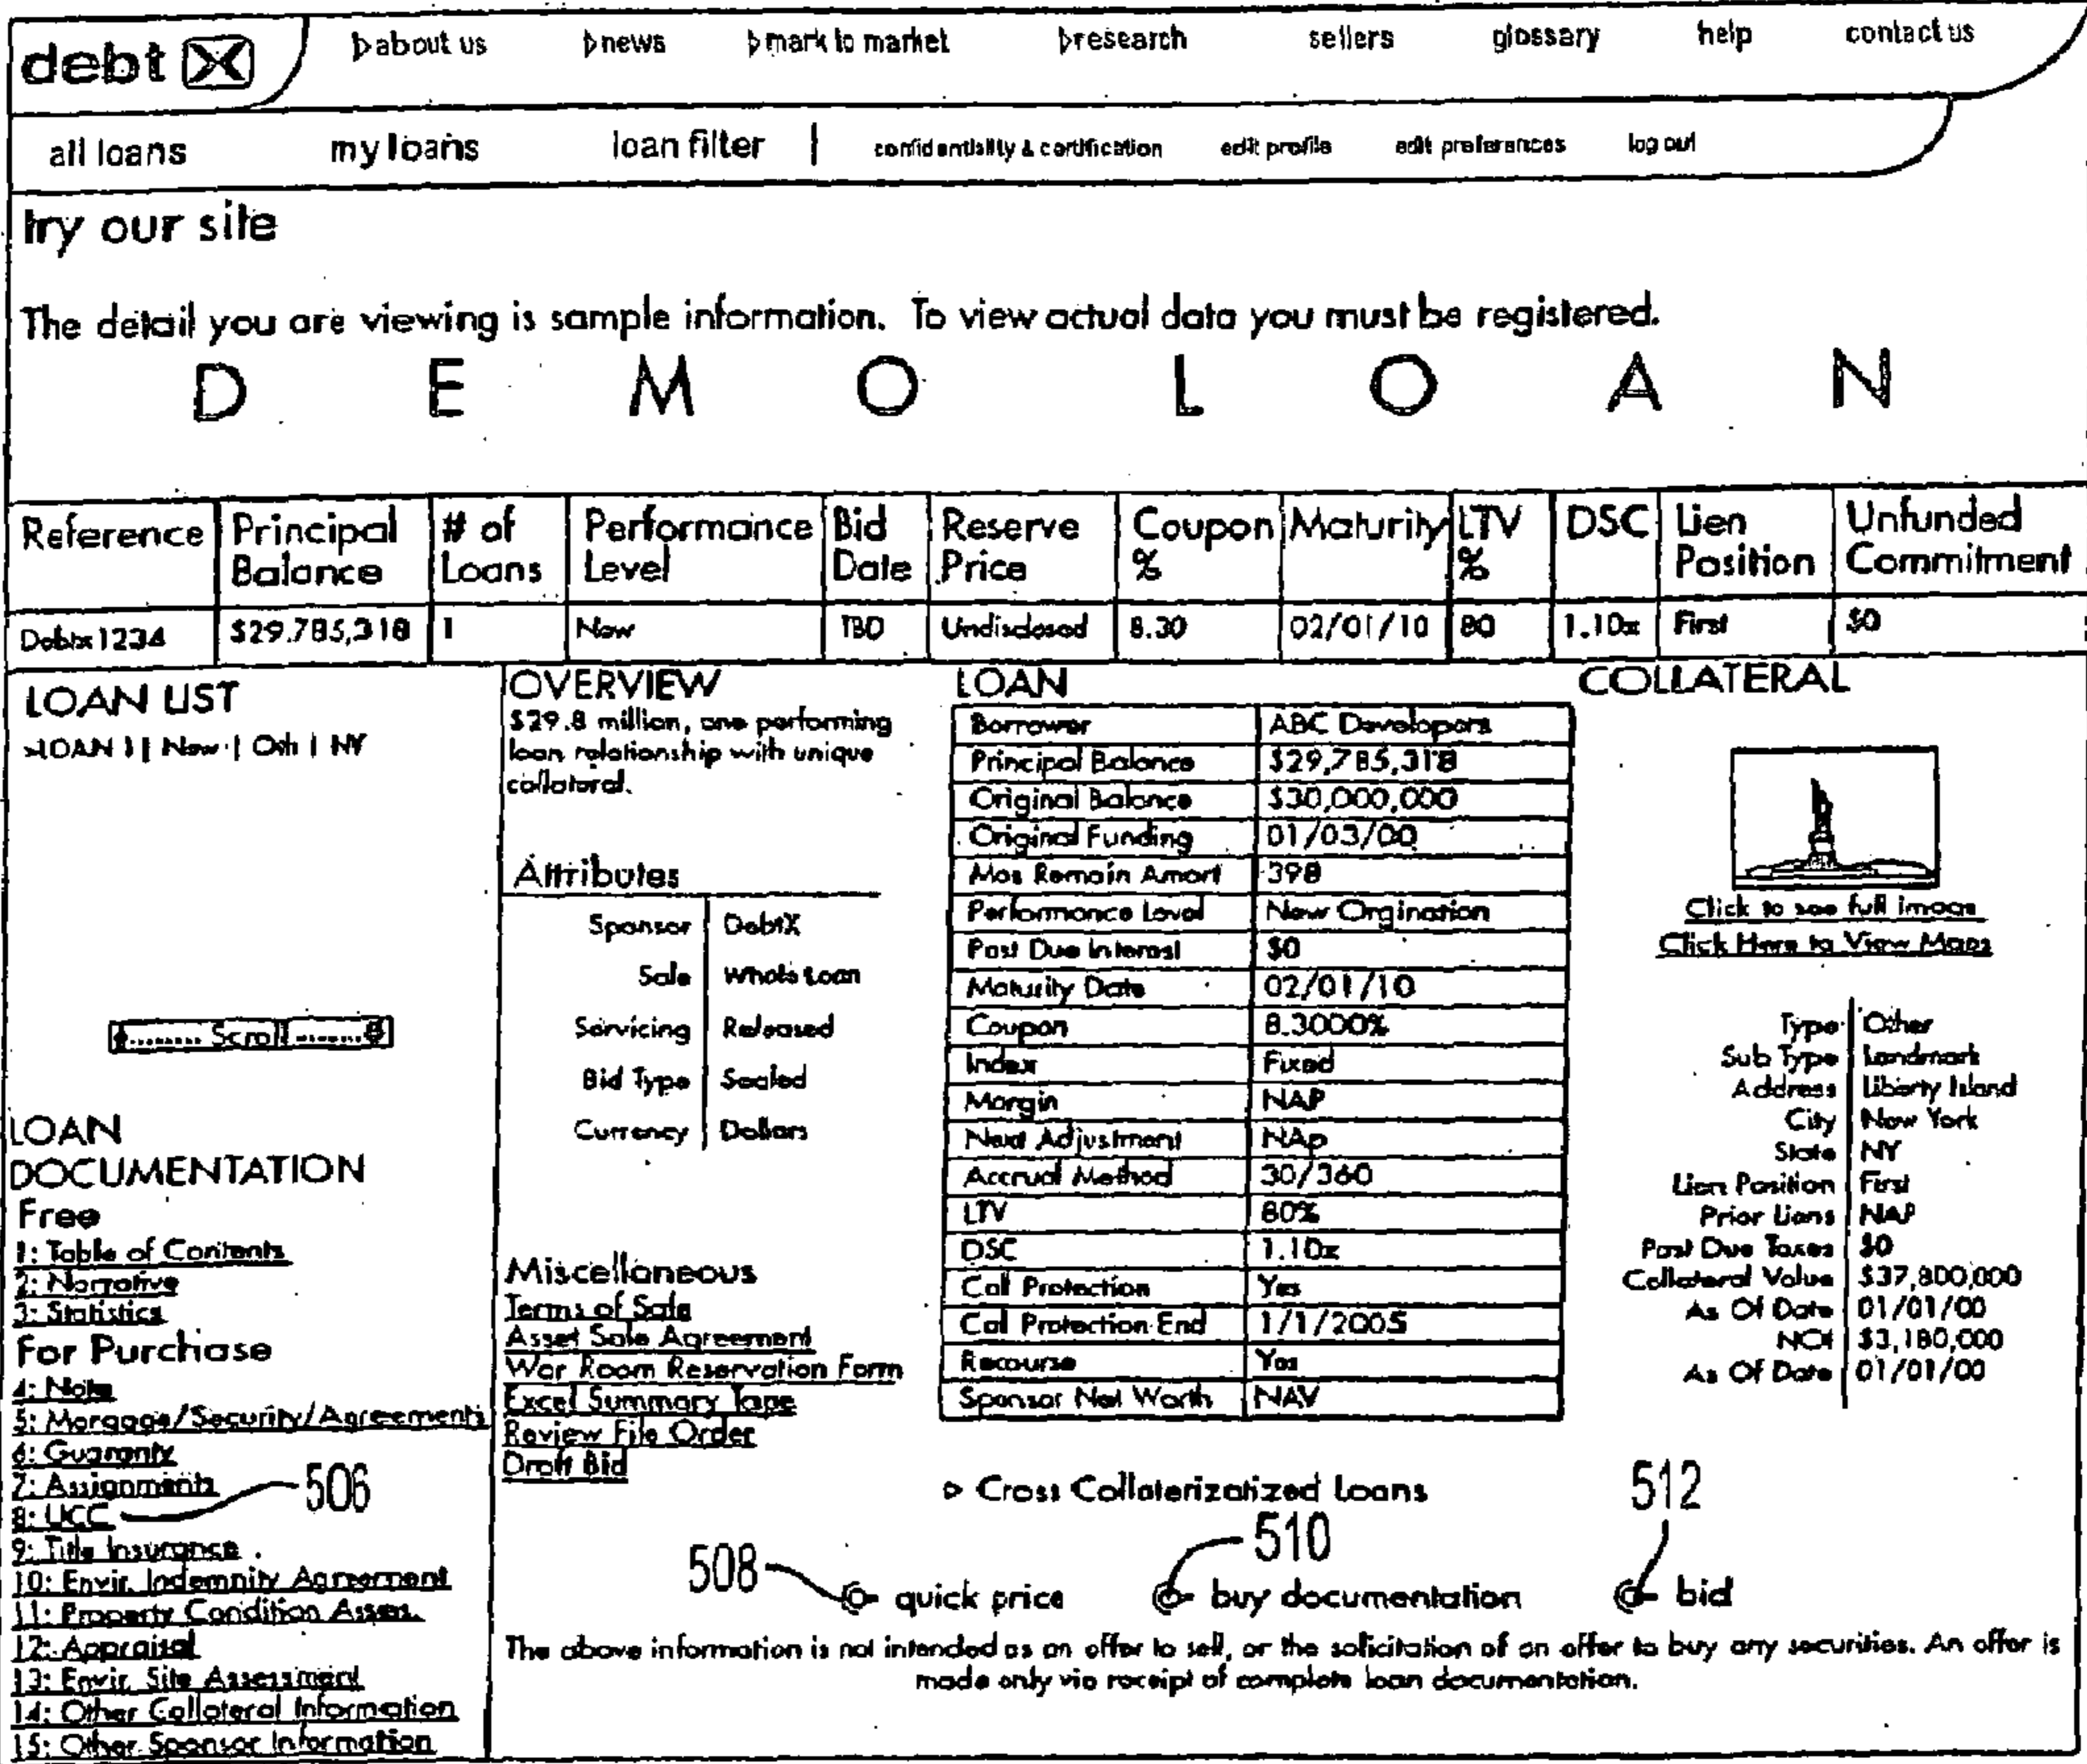 debt X
about us news mark to market research sellers glossary help contact us
all loans my loans loan filter | confidentiality & certification edit profile edit preferences log out
try our site
The detail you are viewing is sample information. To view actual data you must be registered.
D E M O L O A N
Reference Principal Balance # of Loans Performance Level Bid Date Reserve Price Coupon % Maturity LTV % DSC Lien Position Unfunded Commitment
Debtx1234 $29.785,318 1 New TBD Undisclosed 8.30 02/01/10 80 1.10x First $0
LOAN LIST
>LOAN 1 | New | Oth | NY
Scroll
LOAN
DOCUMENTATION
Free
1: Table of Contents
2: Narrative
3: Statistics
For Purchase
4: Note
5: Morgage/Security/Agreements
6: Guaranty
7: Assignments
8: UCC
506
9: Title Insurance
10: Envir. Indemnity Agreement
11: Property Condition Asses.
12: Appraisal
13: Envir. Site Assessment
14: Other Collateral Information
15: Other Sponsor Information
OVERVIEW
$29.8 million, one performing
loan relationship with unique
collateral.
Attributes
Sponsor DebtX
Sale Whole Loan
Servicing Released
Bid Type Sealed
Currency Dollars
Miscellaneous
Terms of Sale
Asset Sale Agreement
War Room Reservation Form
Excel Summary Tape
Review File Order
Draft Bid
LOAN
Borrower ABC Developers
Principal Balance $29,785,318
Original Balance $30,000,000
Original Funding 01/03/00
Mos Remain Amort 398
Performance Level New Orgination
Past Due Interest $0
Maturity Date 02/01/10
Coupon 8.3000%
Index Fixed
Margin NAP
Next Adjustment NAp
Accrual Method 30/360
LTV 80%
DSC 1.10x
Call Protection Yes
Call Protection End 1/1/2005
Recourse Yes
Sponsor Net Worth NAV
COLLATERAL
Click to see full image
Click Here to View Maps
Type Other
Sub Type Landmark
Address Liberty Island
City New York
State NY
Lien Position First
Prior Liens NAP
Past Due Taxes $0
Collateral Value $37,800,000
As Of Date 01/01/00
NOI $3,180,000
As Of Date 01/01/00
Cross Collaterizatized Loans
508 510 512
quick price buy documentation bid
The above information is not intended as an offer to sell, or the solicitation of an offer to buy any securities. An offer is
made only via receipt of complete loan documentation.